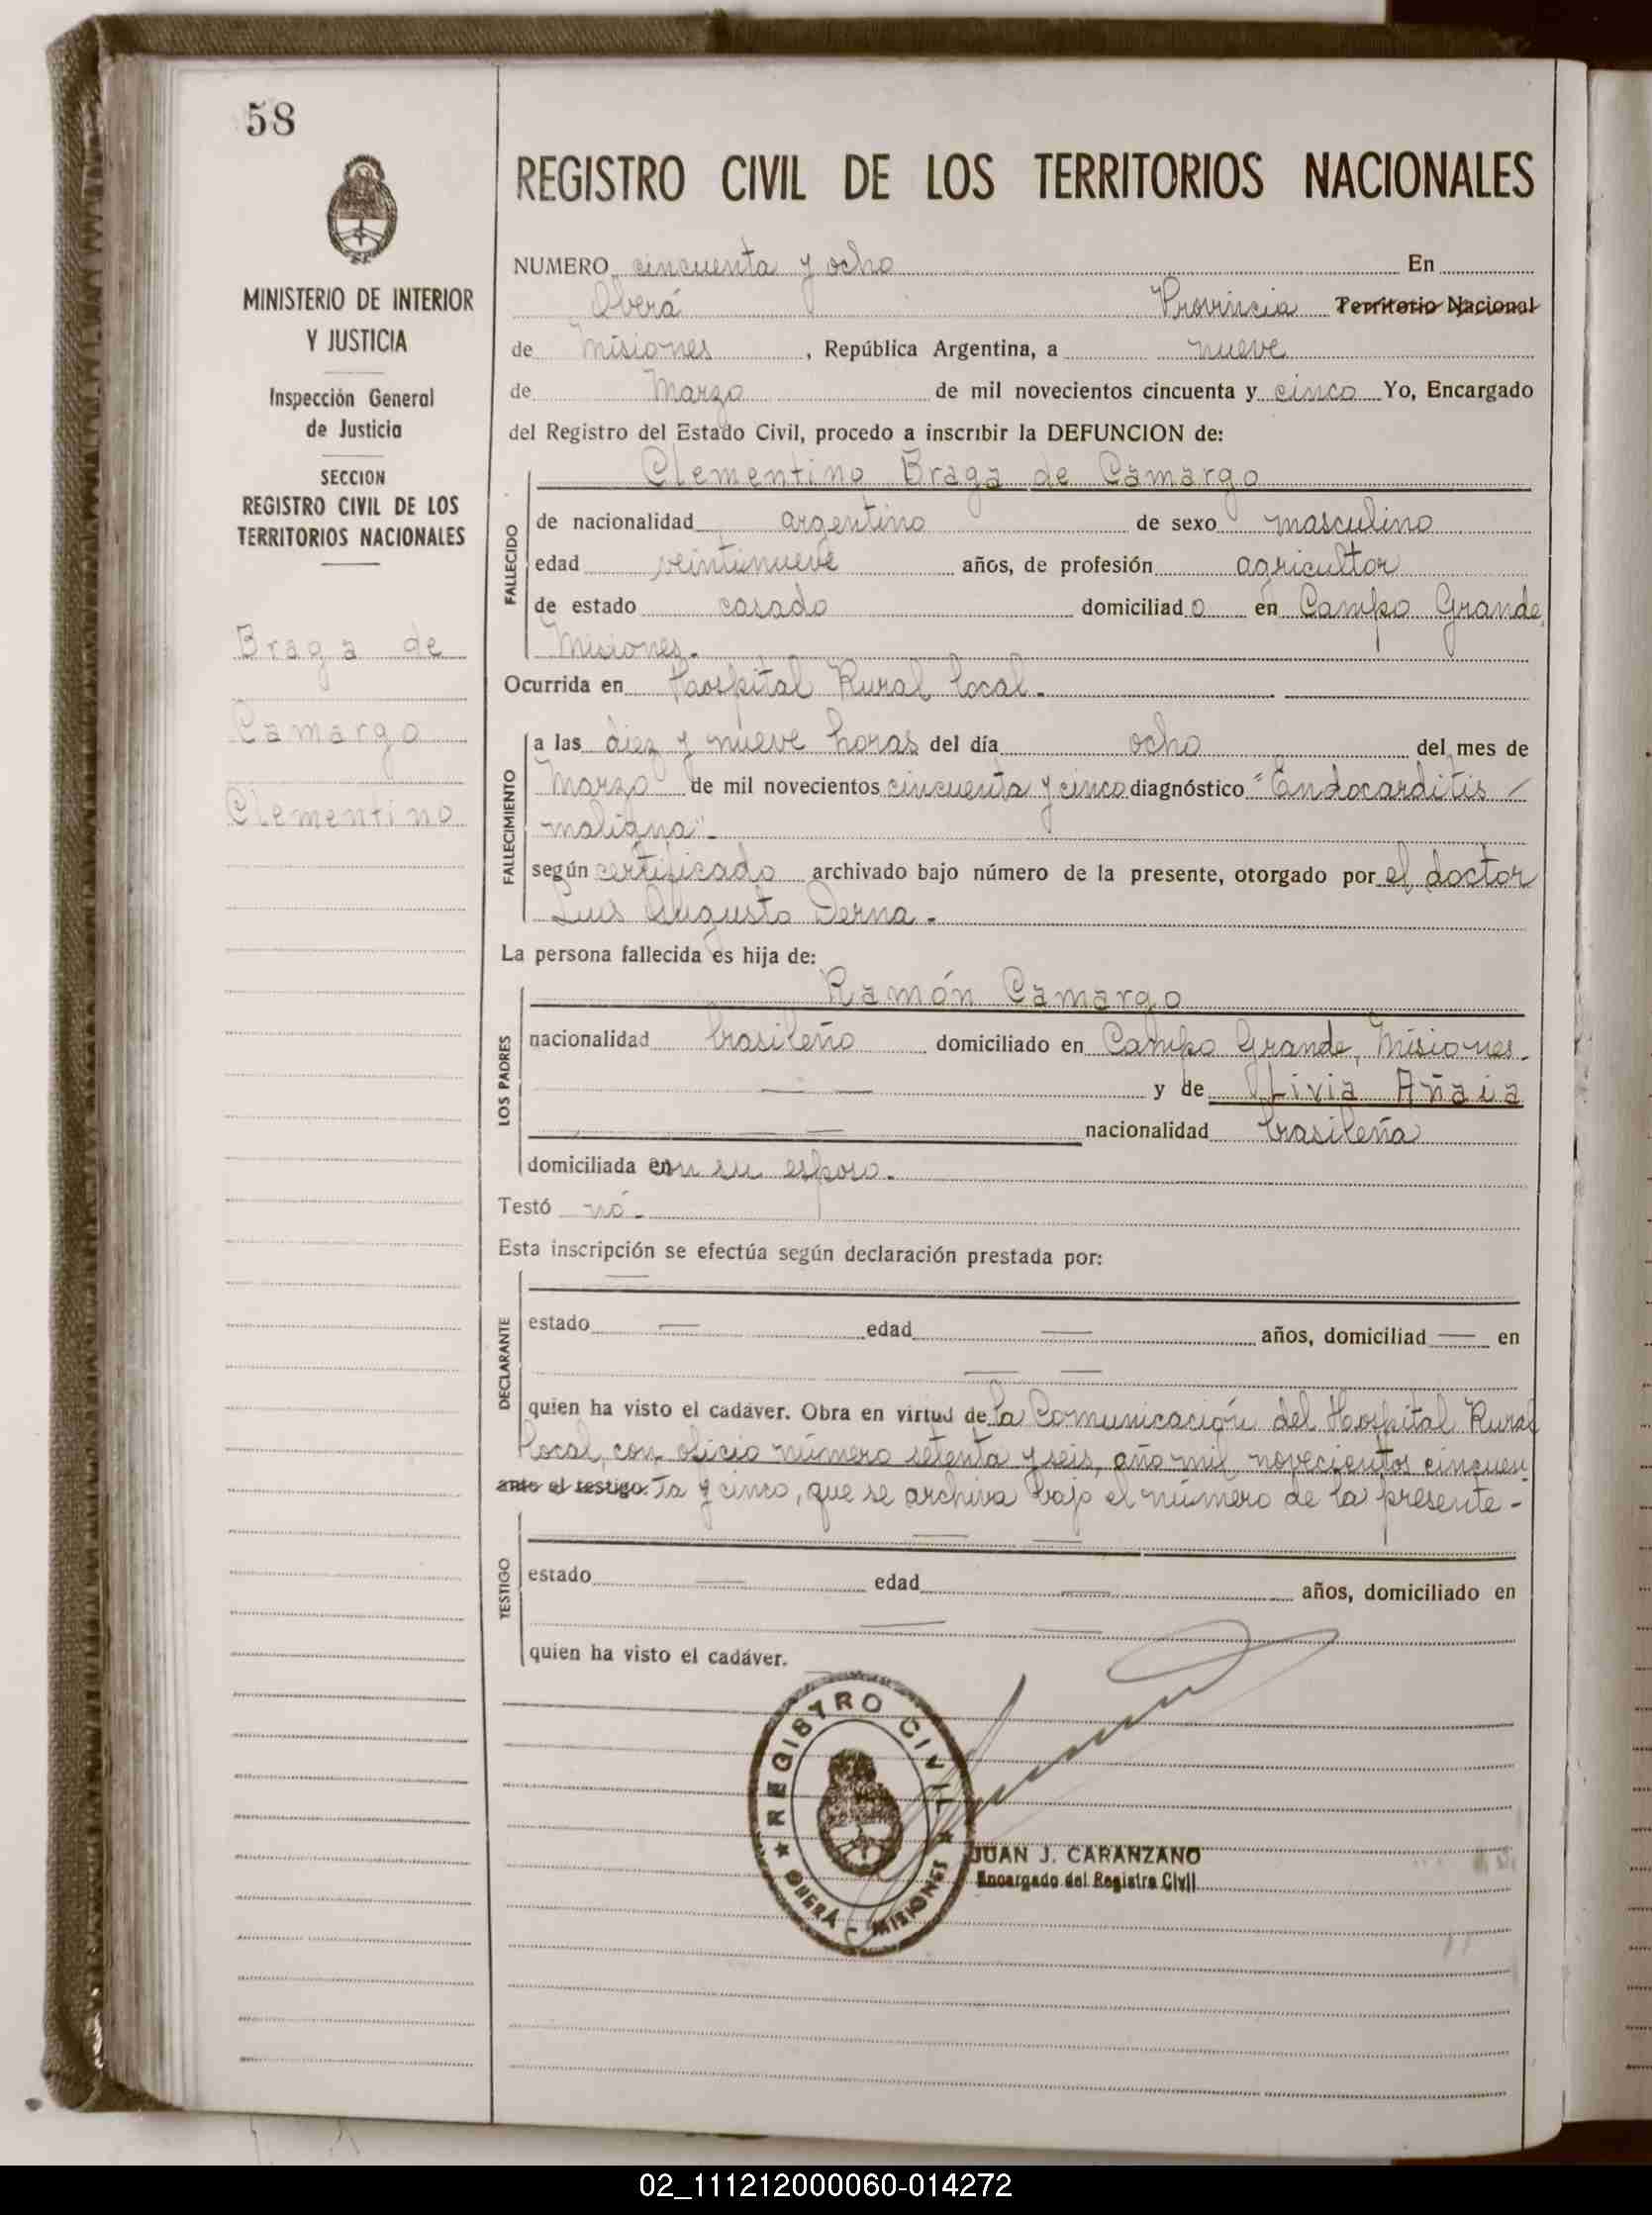 58
REGISTRO CIVIL DE LOS TERRITORIOS NACIONALES
MINISTERIO DE INTERIOR
Y JUSTICIA
Inspección General
de Justicia
SECCION
REGISTRO CIVIL DE LOS
TERRITORIOS NACIONALES
Braga de
Camargo
Clementino
NUMERO cincuenta y ocho En
Oberá Provincia Territorio Nacional
de Misiones, República Argentina, a nueve
de Marzo de mil novecientos cincuenta y cinco Yo, Encargado
del Registro del Estado Civil, procedo a inscribir la DEFUNCION de:
Clementino Braga de Camargo
FALLECIDO
de nacionalidad argentino de sexo masculino
edad veintinueve años, de profesión agricultor
de estado casado domiciliado en Campo Grande,
Misiones.
Ocurrida en Hospital Rural local.
FALLECIMIENTO
a las diez y nueve horas del día ocho del mes de
Marzo de mil novecientos cincuenta y cinco diagnóstico "Endocarditis
maligna"
según certificado archivado bajo número de la presente, otorgado por el doctor
Luis Augusto Derna.
La persona fallecida es hija de:
Ramón Camargo
LOS PADRES
nacionalidad brasileño domiciliado en Campo Grande, Misiones.
y de Livia Añaia
nacionalidad brasileña
domiciliada en su esposo.
Testó nó.
Esta inscripción se efectúa según declaración prestada por:
DECLARANTE
estado — edad — años, domiciliad — en
quien ha visto el cadáver. Obra en virtud de la Comunicación del Hospital Rural
local, con oficio número setenta y seis, año mil novecientos cincuen
ante el testigo. ta y cinco, que se archiva bajo el número de la presente -
TESTIGO
estado — edad — años, domiciliado en
quien ha visto el cadáver.
REGISTRO CIVIL
OBERA - MISIONES
JUAN J. CARANZANO
Encargado del Registro Civil
02_111212000060-014272